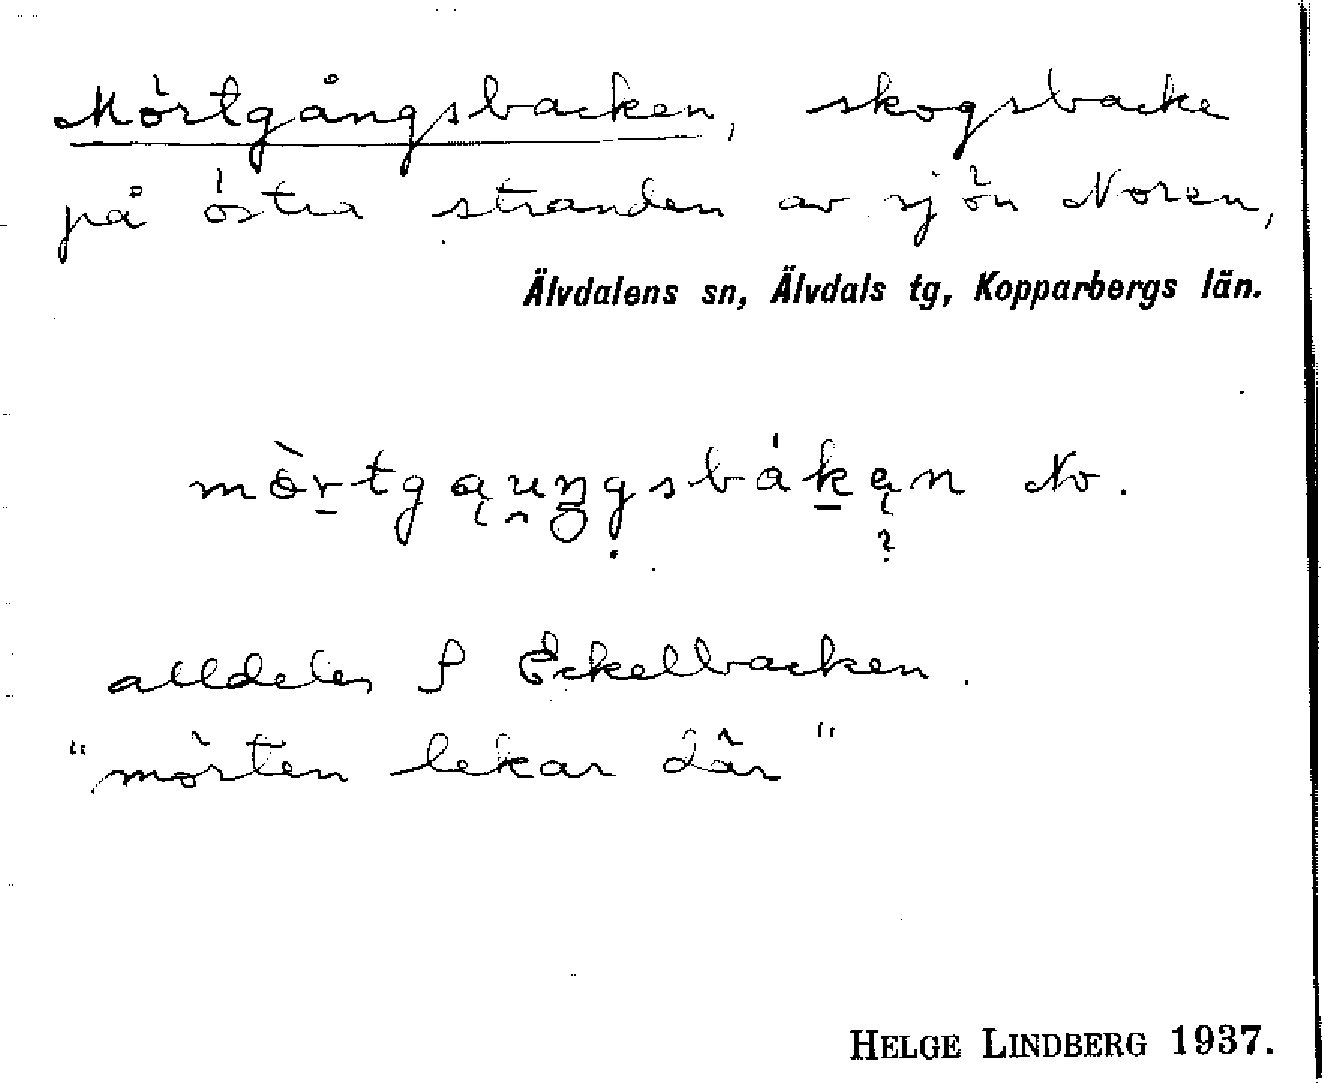 Mörtgångsbacken, skogsbacke
på östra stranden av sjön Noren,
Älvdalens sn, Älvdals tg, Kopparbergs län.
mò̀r̠tgąu̯ŋg̣sbák̠ę́n No.
?
alldeles S Eckelbacken.
"mörten lekar där"
HELGE LINDBERG 1937.